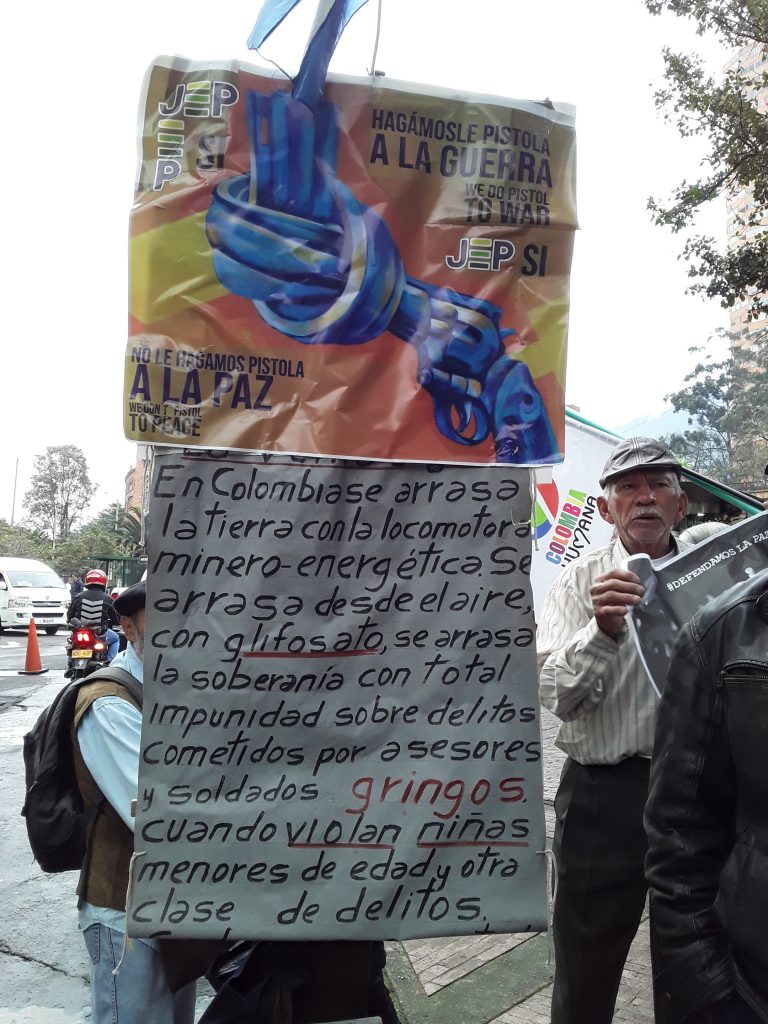 JEP
EP
SI
HAGÁMOSLE PISTOLA
A LA GUERRA
WE DO PISTOL
TO WAR
JEP SI
NO LE HAGAMOS PISTOLA
A LA PAZ
WE DON'T PISTOL
TO PEACE
En Colombia se arrasa
la tierra con la locomotora
minero-energética. Se
arrasa desde el aire,
con glifosato, se arrasa
la soberanía con total
impunidad sobre delitos
cometidos por asesores
y soldados gringos.
cuando violan niñas
menores de edad y otra
clase de delitos.
COLOMBIA
HUMANA
#DEFENDAMOS LA PA